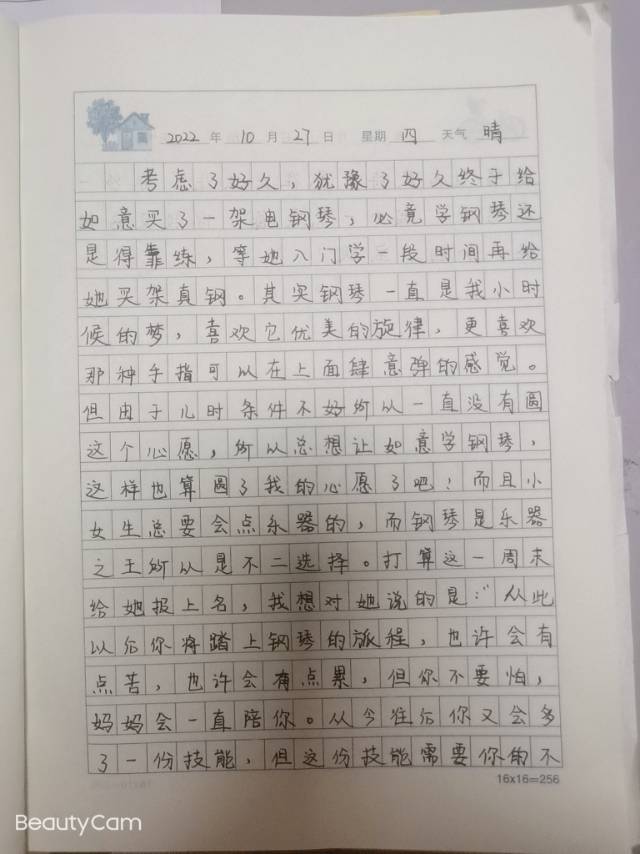 2022 年 10 月 27 日 星期 四 天气 晴
考虑了好久，犹豫了好久终于给
如意买了一架电钢琴，必竟学钢琴还
是得靠练，等她入门学一段时间再给
她买架真钢。其实钢琴一直是我小时
候的梦，喜欢它优美的旋律，更喜欢
那种手指可以在上面肆意弹的感觉。
但由于儿时条件不好所以一直没有圆
这个心愿，所以总想让如意学钢琴，
这样也算圆了我的心愿了吧！而且小
女生总要会点乐器的，而钢琴是乐器
之王所以是不二选择。打算这一周末
给她报上名，我想对她说的是："从此
以后你将踏上钢琴的旅程，也许会有
点苦，也许会有点累，但你不要怕，
妈妈会一直陪你。从今往后你又会多
了一份技能，但这份技能需要你的不
16x16=256
BeautyCam